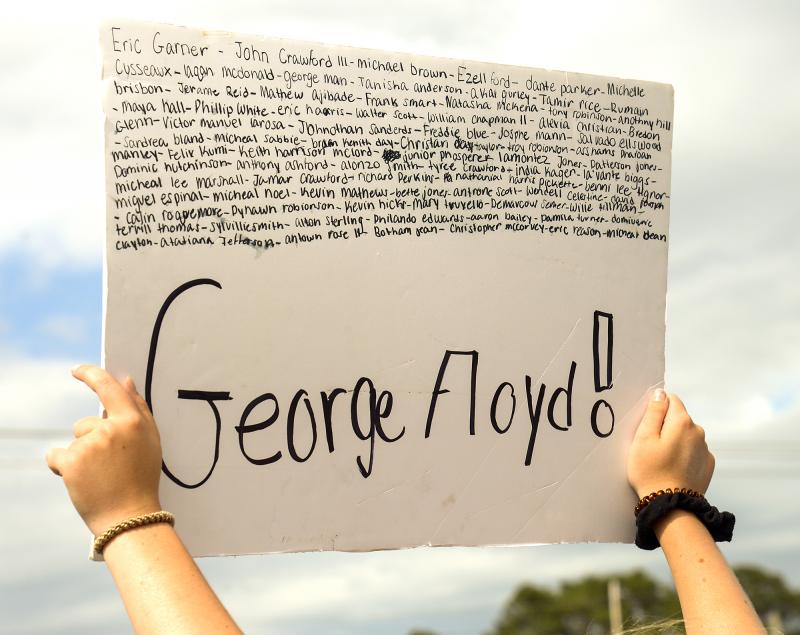 Eric Garner - John Crawford III - michael brown - Ezell ford - dante parker - Michelle
Cusseaux - laqan mcdonald - george man - Tanisha anderson - akai gurley - Tamir rice - Rumain
brisbon - Jerame Reid - Mathew ajibade - Frank smart - Natasha mckena - tony robinson - anothny hill
- maya hall - Phillip White - eric harris - walter scott - william chapman II - alexia christian - Brendon
Glenn - Victor manuel larosa - Johnothan sanders - Freddie blue - Josphe mann - salvado ellswood
- sandrea bland - micheal sabbie - brian keith day - Christian taylor - troy robinson - asshams pharoah
manley - Felix Kumi - Keith harrison mclord - junior phosperer - lamontez Jones - Patterson Jones -
Dominic hutchinson - anthony ashford - alonzo smith - tyree Crawford - india kager - la vante biggs -
micheal lee marshall - Jamar Crawford - richard Perkins - nathanial harris pickette - benni lee tignor -
miguel espinal - micheal noel - Kevin mathews - bette jones - antrone scott - wendell celestine - david joseph
- calin roquemore - Dynawn robionson - Kevin hicks - mary truvello - Demarcow semer - willie tillman -
terrill thomas - sylvilliesmith - alton sterling - Philando edwards - aaron bailey - pamila turner - dominique
clayton - atadiana Jefferson - antown rose II - Botham jean - Christopher mccorvey - eric reason - micheal dean
George Floyd!